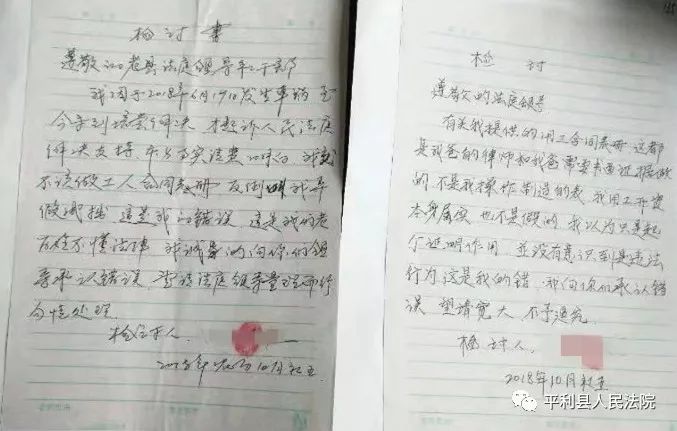 检讨书
尊敬的老县法庭领导和干部
我因于2018年6月19日发生事药至
今未到结案解决 才起诉人民法庭
解决支持
不该做工人合同表册 反倒叫我弄
假减拙 这是我的错误 这是我的老
百姓不懂法律 我诚恳的向你们领
导承认错误 当请法庭领导量理而行
句情处理
检讨人
2018年农历10月初五
检讨
尊敬的法庭领导
有关我提供的用工合同表册 这都
是我爸的律师和我爸需要书面证据做
的 不是我操作制造的表 我用工开资
本身属实 也不是假的 我以为只是起
个证明作用 并没有意识到是违法
行为 这是我的错 我向你们承认错
误 望请宽大 不予追究
检讨人
2018年10月初五
平利县人民法院